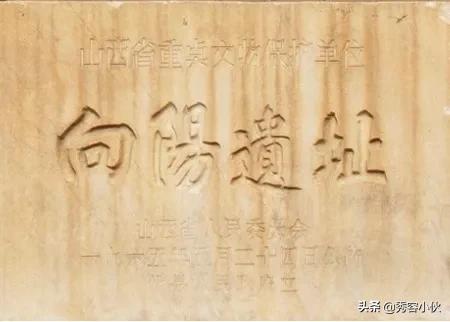 山西省重点文物保护单位
向陽遺址
山西省人民委员会
一九六五年五月二十四日公布
县人民政府立
头条 @秀容小伙